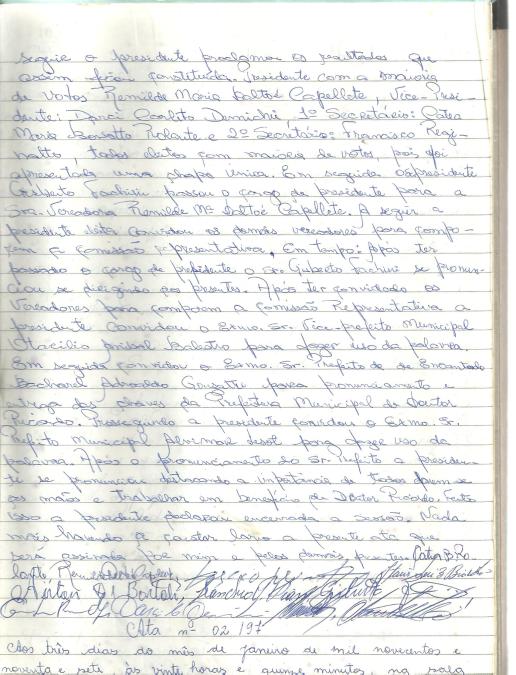 seguir o presidente proclamou os resultados que
assim ficou constituída. Presidente com a maioria
de votos Remilde Maria Saltoé Capellete, Vice-Presi-
dente: Danci Carlito Demichei, 1ª Secretário: Catea
Maria Borsatto Rolante e 2º Secretário: Francisco Regi-
natto, todos eleitos com maioria de votos, pois foi
apresentada uma chapa única. Em seguida o presidente
Gilberto Fachini passou o cargo de presidente para a
Sra. Vereadora Remilde Mª Saltoé Capellete. A seguir a
presidente eleita convidou os demais vereadores para compo-
rem a Comissão representativa. Em tempo: Após ter
passado o cargo de presidente o Sr. Gilberto Fachini se pronun-
ciou se dirigindo aos presentes. Após ter convidado os
Vereadores para comporem a Comissão Representativa a
presidente convidou o Exmo. Sr. Vice-prefeito Municipal
Otacilio para fazer uso da palavra.
Em seguida convidou o Exmo. Sr. Prefeito de Encantado
Bacharel Adroaldo para pronunciamento e
entrega das chaves da Prefeitura Municipal de Doutor
Ricardo. Prosseguindo a presidente convidou o Exmo. Sr.
Prefeito Municipal Alvimar para fazer uso da
palavra. Após o pronunciamento do Sr. Prefeito a presiden-
te se pronunciou destacando a importância de todos darem-se
as mãos e trabalhar em benefício de Doutor Ricardo. Feito
isso a presidente declarou encerrada a Sessão. Nada
mais havendo a constar lavro a presente ata que
será assinada por mim e pelos demais presentes. Catia B. Ro
lante,
Ata nº 02/97
Aos três dias do mês de janeiro de mil novecentos e
noventa e sete, às vinte horas e quinze minutos, na sala